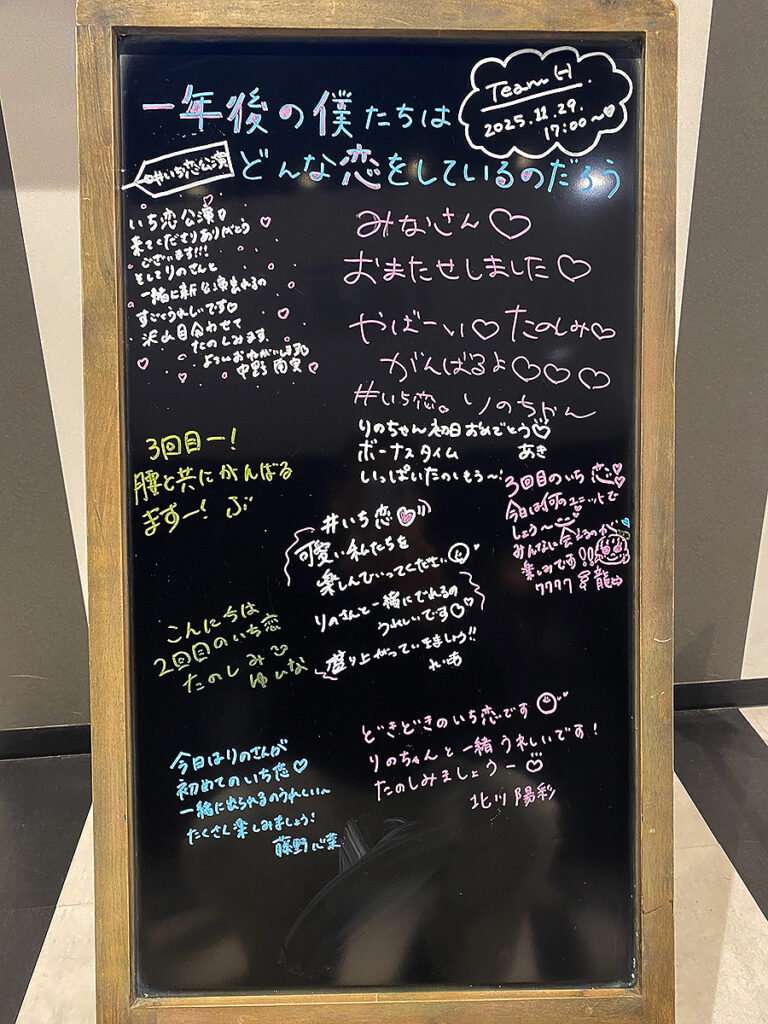 一年後の僕たちは
どんな恋をしているのだろう
Team H.
2025.11.29.
17:00〜
#いち恋公演
いち恋公演♡
来てくださりありがとう
ございます!!!
そしてりのさんと
一緒に新公演出れるの
すごくうれしいです♡
沢山目合わせて
たのしみます、
よろしくおねがいします
中野 南実
みなさん♡
おまたせしました♡
やばーい♡たのしみ♡
がんばるよ♡♡♡
#いち恋。りのちゃん
りのちゃん初日おめでとう♡
ボーナスタイム あき
いっぱいたのしもう〜!
3回目ー!
腰と共にがんばる
ますー! ぶ
3回目のいち恋♡
今日は何のユニットで
しょう〜
みんなに会えるのが
楽しみです!!
ワクワク 昇龍
#いち恋♡
可愛い私たちを
楽しんでいってください
りのさんと一緒にでれるの
うれしいです♡
盛り上がっていきましょう!!
れいあ
こんにちは
2回目のいち恋
たのしみ
ゆいな
今日はりのさんが
初めてのいち恋♡
一緒に出られるのうれしい〜
たくさん楽しみましょう!
藤野心葉
どきどきのいち恋です
りのちゃんと一緒うれしいです!
たのしみましょうー
北川 陽彩